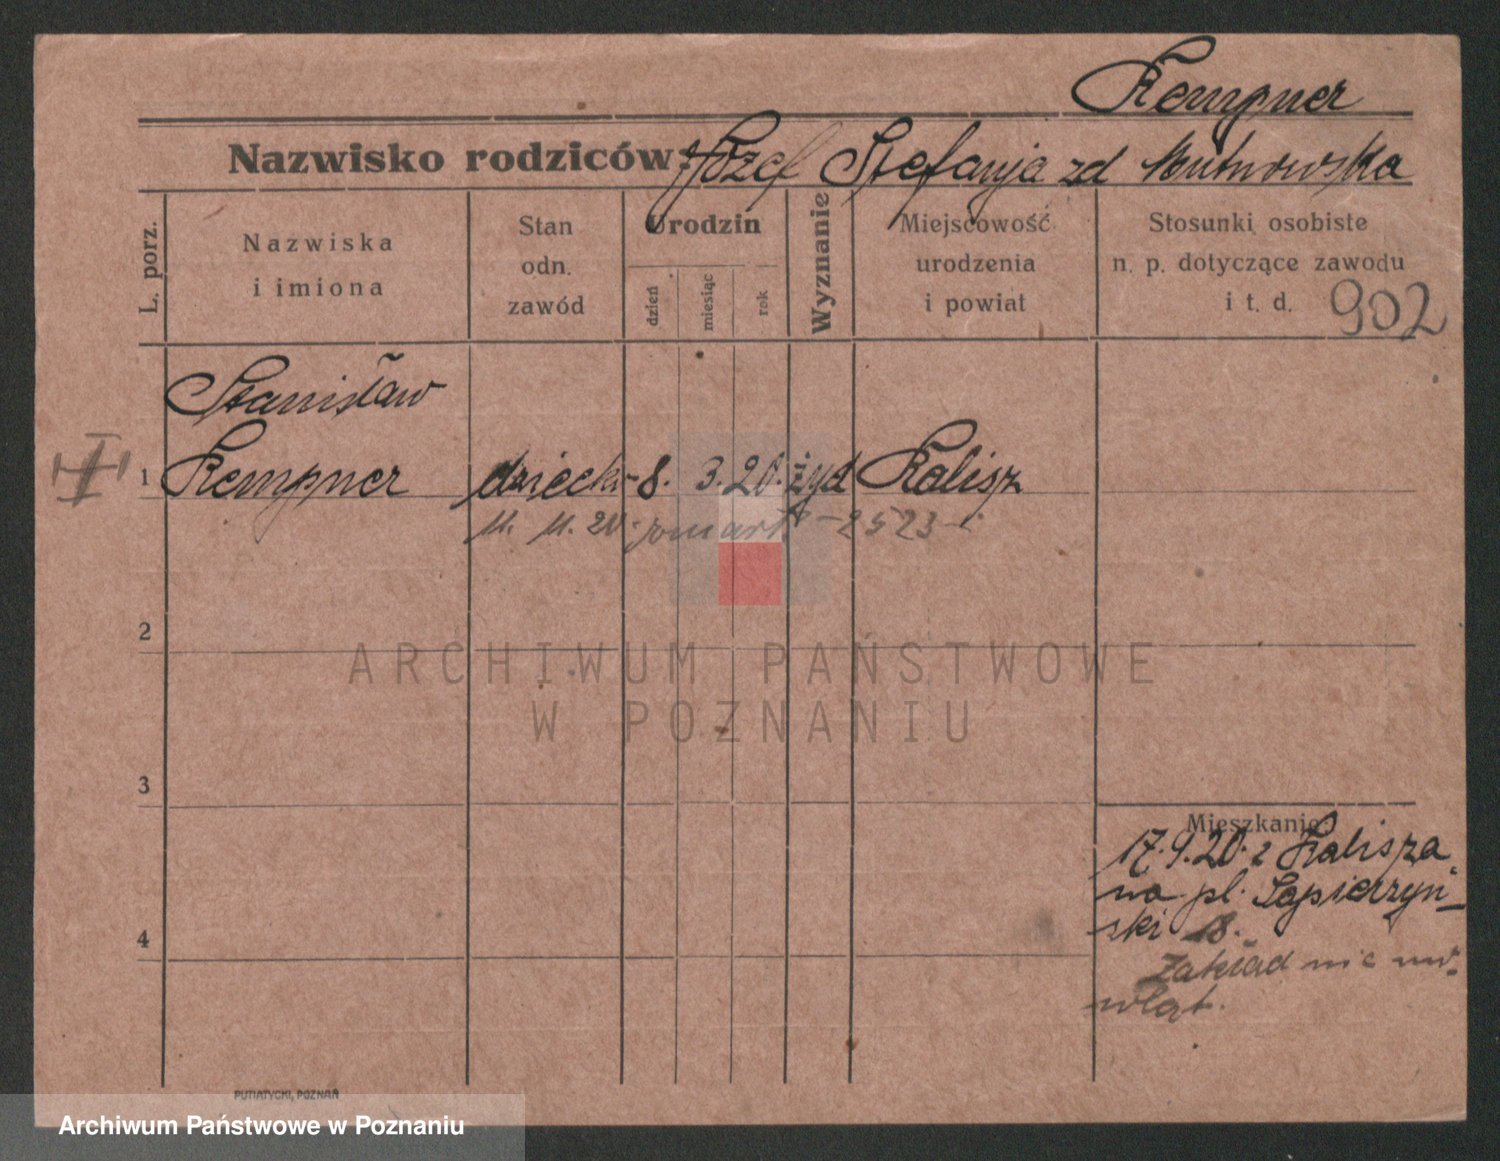 Kempner
Nazwisko rodziców: Józef Stefanja zd Kutnowska
L. porz.
Nazwiska
i imiona
Stan
odn.
zawód
Urodzin
dzień
miesiąc
rok
Wyznanie
Miejscowość
urodzenia
i powiat
Stosunki osobiste
n. p. dotyczące zawodu
i t. d. 902
Stanisław
1 Kempner dziecko 8. 3. 20. żyd Kalisz
11. 11. 20. zmarł - 2523 -
2
ARCHIWUM PAŃSTWOWE
W POZNANIU
3
Mieszkanie:
17.9.20. z Kalisza
na pl. Sapierzyń-
ski 18.
4
Zakład nie
PUTIATYCKI, POZNAŃ
Archiwum Państwowe w Poznaniu